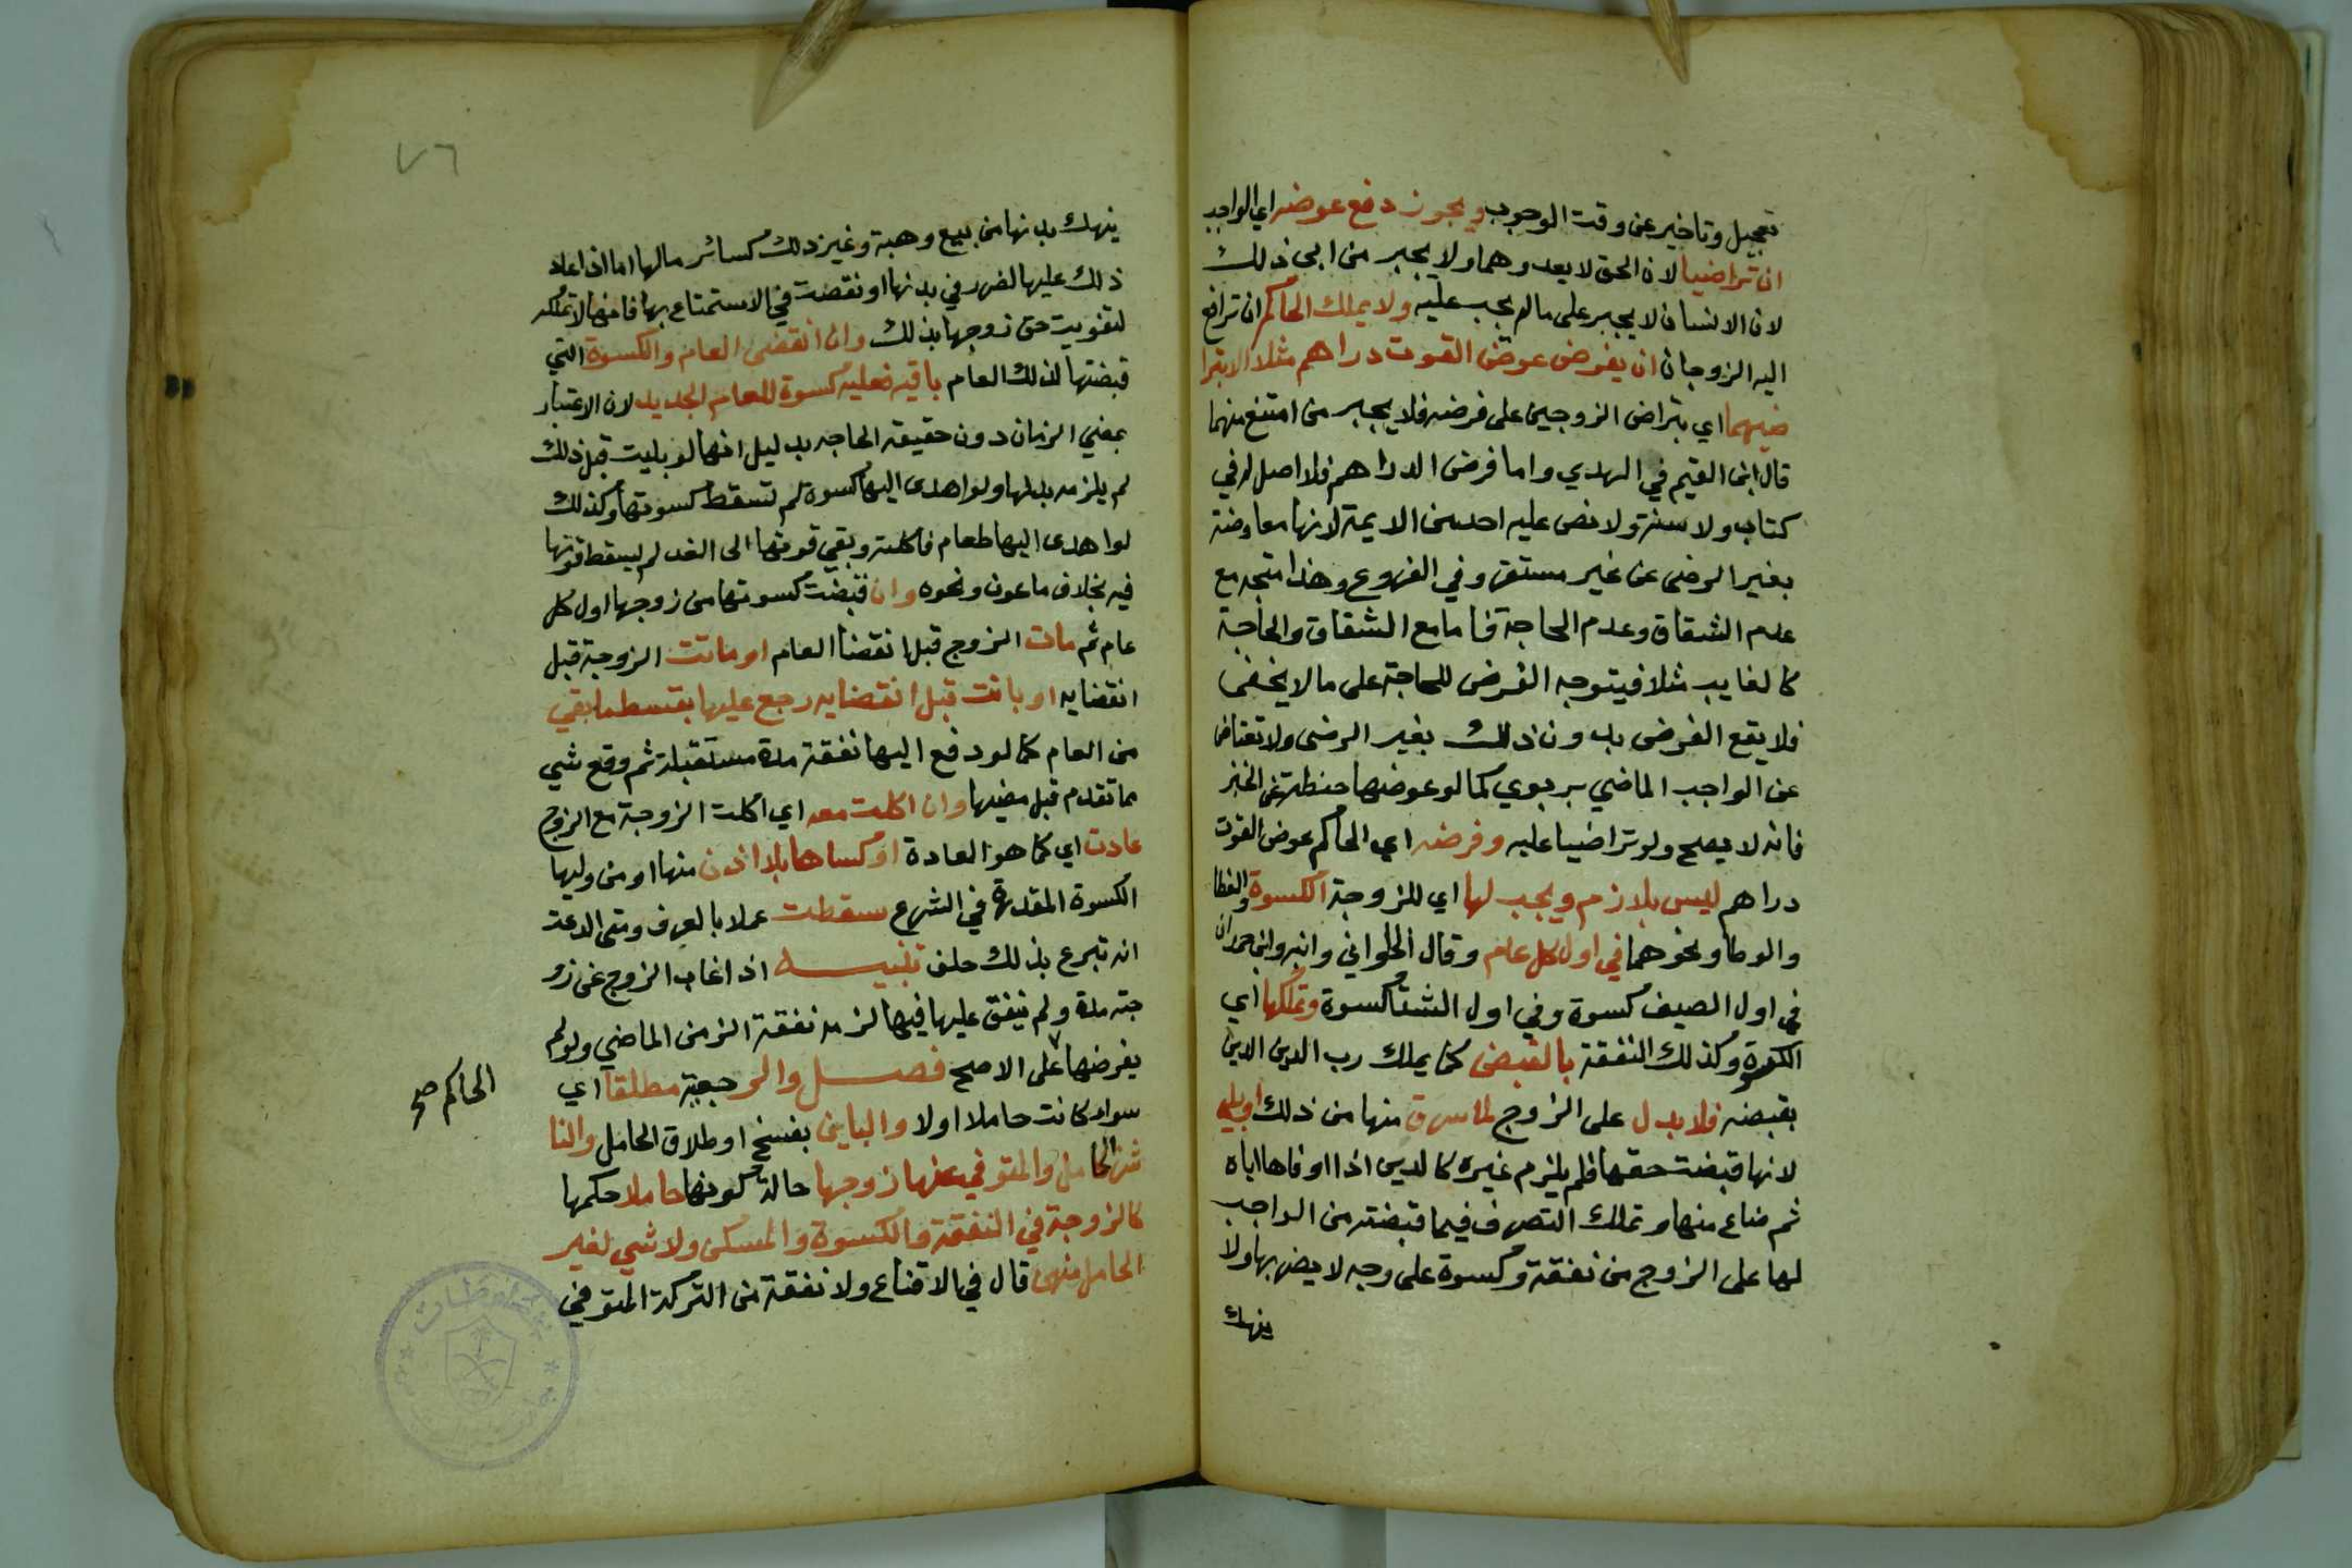 تعجيل وتاخير عن وقت الوجوب ويجوز دفع عوضه اي الواجب
ان تراضيا لان الحق لا يعدوهما ولا يجبر من ابى ذلك
لان الانسان لا يجبر على ما لم يجب عليه ولا يملك الحاكم ان ترافع
اليه الزوجان ان يفرض عوض القوت دراهم مثلا الا بترا
ضيهما اي بتراضي الزوجين على فرضه فلا يجبر من امتنع منهما
قال ابن القيم في الهدي واما فرض الدراهم فلا اصل له في
كتاب ولا سنة ولا نص عليه احد من الايمة لانها معاوضة
بغير الرضى عن غير مستقر وفي الفروع وهذا متجه مع
عدم الشقاق وعدم الحاجة فاما مع الشقاق والحاجة
كالغايب مثلا فيتوجه الفرض للحاجة على ما لا يخفى
فلا يقع الفرض بدون ذلك بغير الرضى ولا تعتاض
عن الواجب الماضي بربوي كما لو عوضها حنطة عن الخبز
فانه لا يصح ولو تراضيا عليه وفرضه اي الحاكم عوض القوت
دراهم ليس بلازم ويجب لها اي للزوجة الكسوة والغطا
والوطا ونحوهما في اول كل عام وقال الحلواني وابنه وابن حمدان
في اول الصيف كسوة وفي اول الشتا كسوة وتملكها اي
الكسوة وكذلك النفقة بالقبض كما يملك رب الدين الدين
بقبضه فلا بدل على الزوج لما سرق منها من ذلك او بلي
لانها قبضت حقها فلم يلزم غيره كالدين اذا اوفاها اياه
ثم ضاع منها وتملك التصرف فيما قبضته من الواجب
لها على الزوج من نفقة وكسوة على وجه لا يضر بها ولا
ينهك
٧٦
ينهك بدنها من بيع وهبة وغير ذلك كسائر مالها اما اذا عاد
ذلك عليها الضرر في بدنها او نقصت في الاستمتاع بها فانها لا تملكه
لتفويت حق زوجها بذلك وان انقضى العام والكسوة التي
قبضتها لذلك العام باقيه فعليه كسوة للعام الجديد لان الاعتبار
بمضي الزمان دون حقيقة الحاجه بدليل انها لو بليت قبل ذلك
لم يلزمه بدلها ولو اهدى اليها كسوة لم تسقط كسوتها وكذلك
لو اهدى اليها طعام فاكلته وبقي قوتها الى الغد لم يسقط قوتها
فيه بخلاف ماعون ونحوه وان قبضت كسوتها من زوجها اول كل
عام ثم مات الزوج قبل انقضا العام او ماتت الزوجة قبل
انقضايه او بانت قبل انقضايه رجع عليها بقسط ما بقي
من العام كما لو دفع اليها نفقة مدة مستقبلة ثم وقع شي
مما تقدم قبل مضيها وان اكلت معه اي اكلت الزوجة مع الزوج
عادت اي كما هو العادة او كساها بلا اذن منها او من وليها
الكسوة المقدرة في الشرع سقطت عملا بالعرف ومتى ادعت
انه تبرع بذلك حلف تنبيه اذا غاب الزوج عن زو
جته مدة ولم ينفق عليها فيها لزمه نفقة الزمن الماضي ولو لم
يفرضها على الاصح فصل والرجعية مطلقا اي
سواء كانت حاملا او لا والباين بفسخ او طلاق الحامل والنا
شز الحامل والمتوفي عنها زوجها حالة كونها حاملا حكمها
كالزوجة في النفقة والكسوة والمسكن ولا شي لغير
الحامل منهن قال في الاقناع ولا نفقة من التركة المتوفي
الحاكم صح